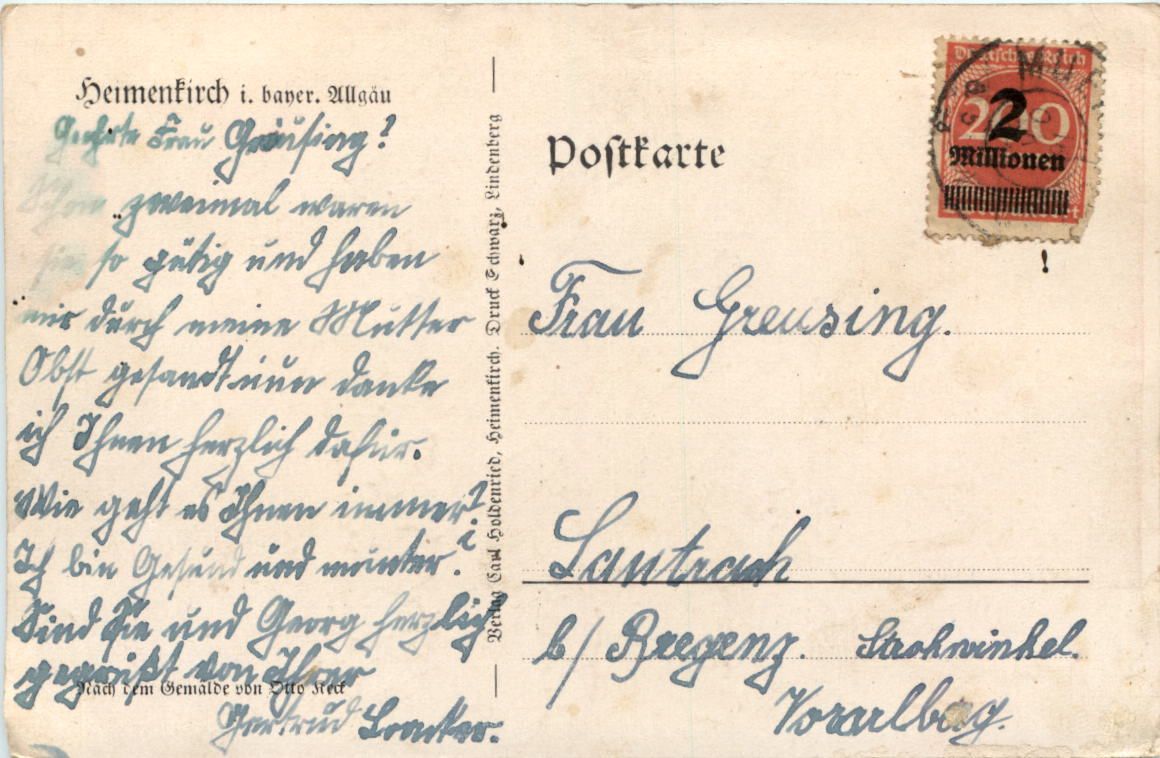 Heimenkirch i. bayer. Allgäu
Geehrte Frau Greusing!
Schon zweimal waren
Sie so gütig und haben
mir durch meine Mutter
Obst gesandt nun danke
ich Ihnen herzlich dafür.
Wie geht es Ihnen immer?
Ich bin Gesund und munter.
Sind Sie und Georg herzlich
gegrüßt von Ihrer
Nach dem Gemälde von Otto Keck
Gertrud Loacker.
Verlag Carl Holdenried, Heimenkirch. Druck Schwarz, Lindenberg
Postkarte
Deutsches Reich
200
2
Millionen
Frau Greusing.
Lautrach
b/ Bregenz. Strohwinkel.
Vorarlberg.